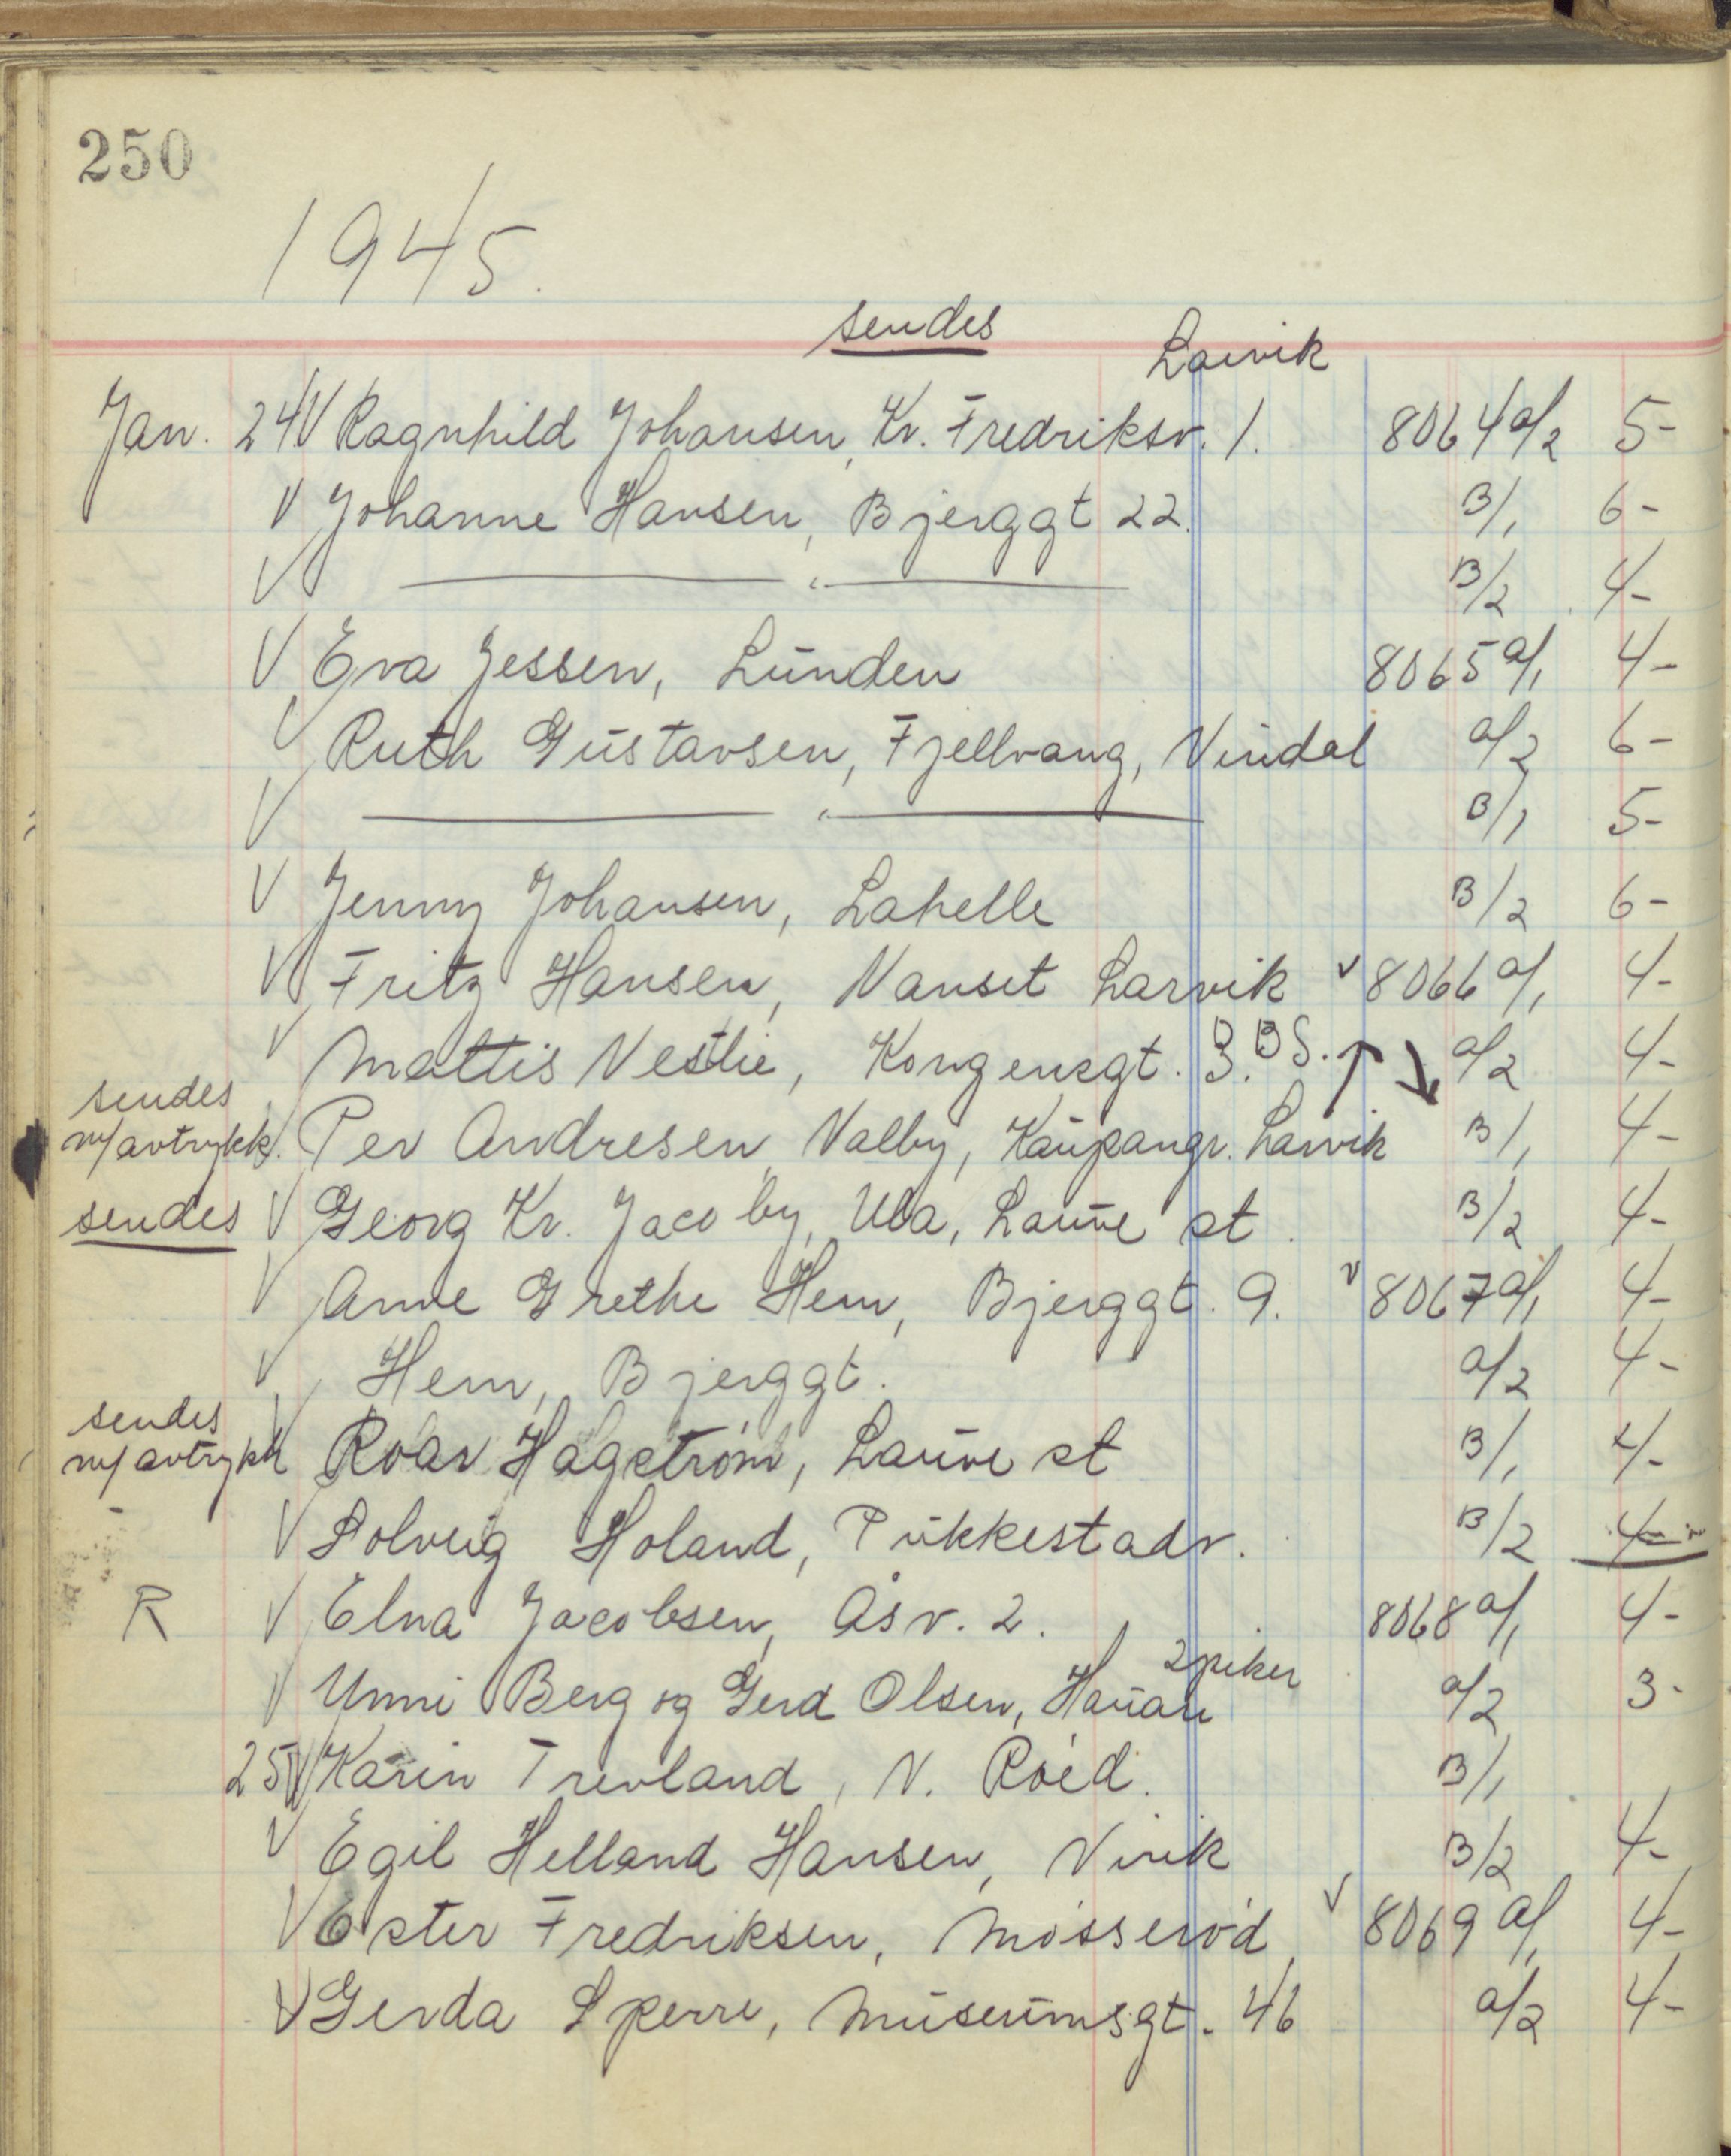 250
1945.
sendes Larvik
Jan. 24 V Ragnhild Johansen, Kr. Fredriksv. 1. 8064 a/2 5-
V Johanne Hansen, Bjerggt 22. B/1 6-
V — " — B/2 4-
V Eva Jessen, Lunden 8065 a/1 4-
V Ruth Gustavsen, Fjellvang, Vindal a/2 6-
V — " — B/1 5-
V Jenny Johansen, Lahelle B/2 6-
V Fritz Hansen, Nanset Larvik v 8066 a/1 4-
V Mattis Nestlie, Kongensgt. 3. BS. ↑ ↓ a/2 4-
sendes
m/avtrykk. Per Andresen, Valby, Kaupangv. Larvik B/1 4-
sendes V Georg Kr. Jacoby, Ula, Lauve st. B/2 4-
V Anne Grethe Hem, Bjerggt. 9. v 8067 a/1 4-
V Hem, Bjerggt. a/2 4-
sendes
m/avtrykk V Roar Hagstrøm, Lauve st B/1 4-
V Solveig Holand, Pukkestadv. B/2 4-
R V Elna Jacobsen, Åsv. 2. 8068 a/1 4-
2 piker
V Unni Berg og Gerd Olsen, Hauan a/2 3-
25 V Karin Trevland, N. Röed. B/1
V Egil Helland Hansen, Virik B/2 4-
V Ester Fredriksen, Mosserød v 8069 a/1 4-
V Gerda Sperre, Museumsgt. 46 a/2 4-